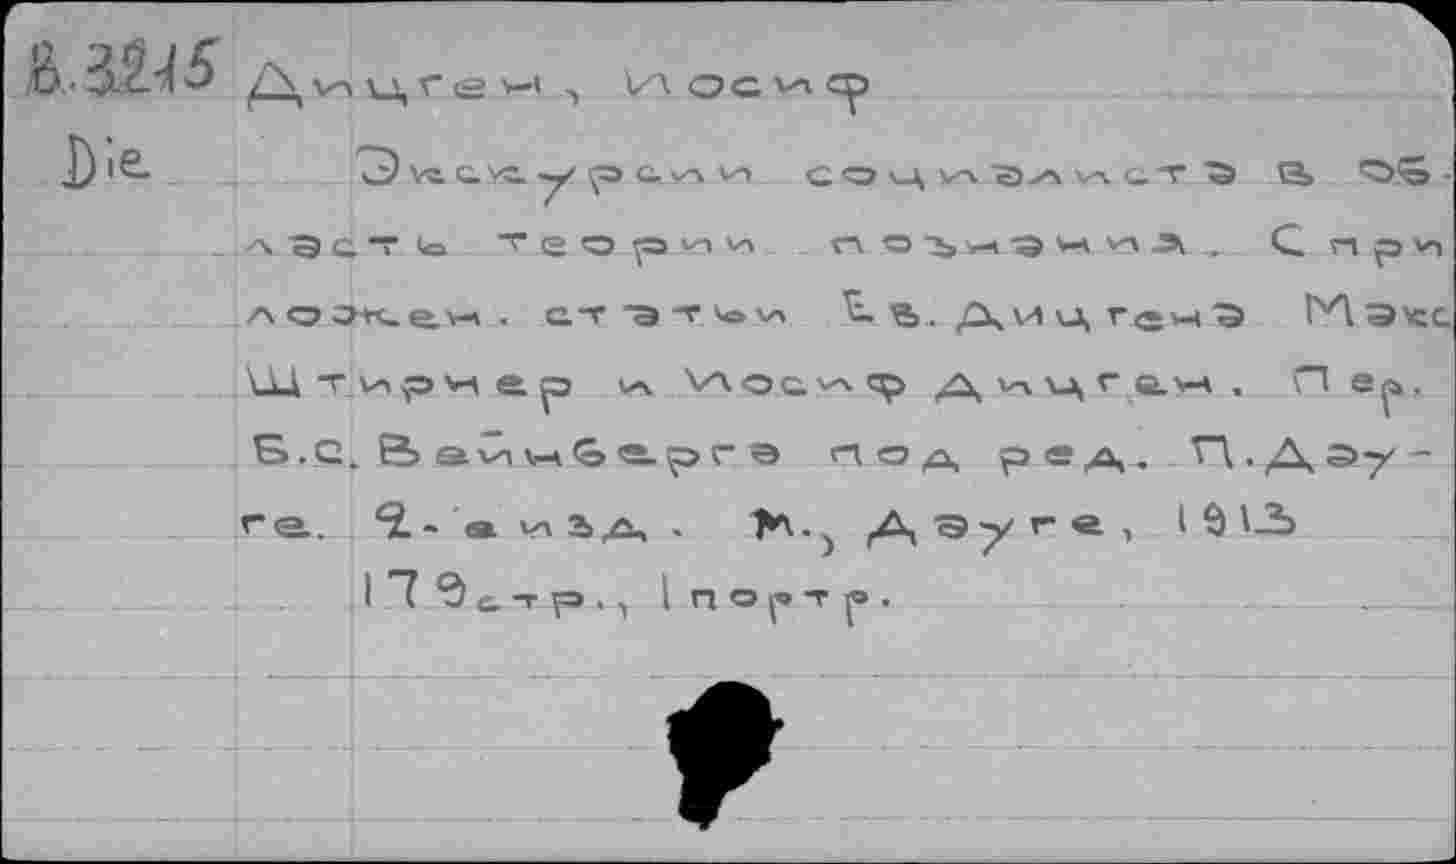 В.3215 Дицген, Иосиф
Die Экскурсии социалиста в об-
ласть теории познания. С при
ложен. статьи Е.В. Дицгена Макс
Штирнер и Иосиф Дицген. Пер.
Б.С. Вайнберга под ред. П.Дау-
ге. 2-е изд. М., Дауге, 1913
179стр., 1 портр.